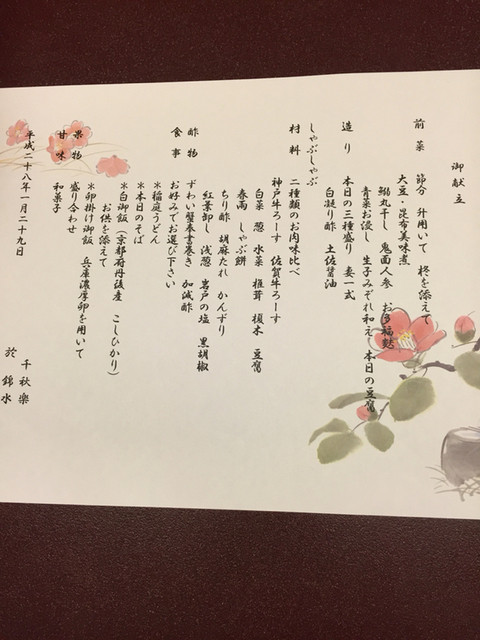 御献立
前菜 節分 升用いて 柊を添えて
大豆・昆布美味煮
鰯丸干し 鬼面人参 お多福麩
青菜お浸し 生子みぞれ和え 本日の豆腐
造り 本日の三種盛り 妻一式
白凝り酢 土佐醤油
しゃぶしゃぶ
材料 二種類のお肉味比べ
神戸牛ろーす 佐賀牛ろーす
白菜 葱 水菜 椎茸 榎木 豆腐
春雨 しゃぶ餅
ちり酢 胡麻たれ かんずり
紅葉卸し 浅葱 岩戸の塩 黒胡椒
酢物 ずわい蟹奉書巻き 加減酢
食事 お好みでお選び下さい
*稲庭うどん
*本日のそば
*白御飯(京都府丹後産 こしひかり)
お供を添えて
*卵掛け御飯 兵庫濃厚卵を用いて
果物 盛り合わせ
甘味 和菓子
平成二十八年一月二十九日
千秋樂
於 錦水